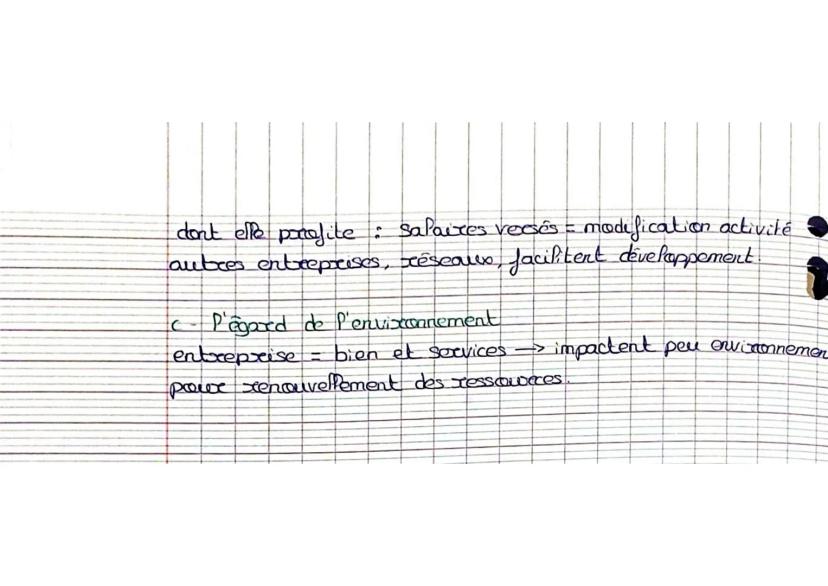 dont elle profite : salaires versés = modification activité
autres entreprises, réseaux, facilitent développement.
c - l'égard de l'environnement
entreprise = bien et services → impactent peu environnemen
pour renouvellement des ressources.